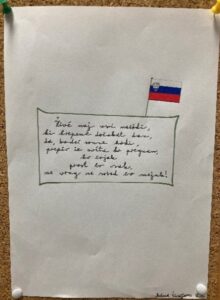 Živé naj vsi naródi,
ki hrepené dočakat dan,
da, koder sonce hodi,
prepir iz svéta bo pregnan,
rojak
prost bo vsak,
ne vrag, le sosed bo mejak!